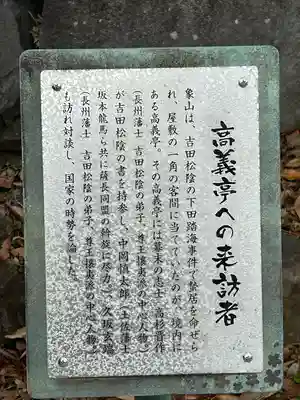 高義亭への来訪者
象山は、吉田松陰の下田踏海事件で蟄居を命ぜら
れ、屋敷の一角の客間に当てていたのが、境内に
ある高義亭。その高義亭には幕末の志士、高杉晋作
(長州藩士 吉田松陰の弟子、尊王攘夷派の中心人物)
が吉田松陰の書を持参し、中岡慎太郎(土佐藩士
坂本龍馬らと共に薩長同盟の斡旋に尽力)、久坂玄瑞
(長州藩士 吉田松陰の弟子、尊王攘夷派の中心人物)
も訪れ対談し、国家の時勢を論じた。